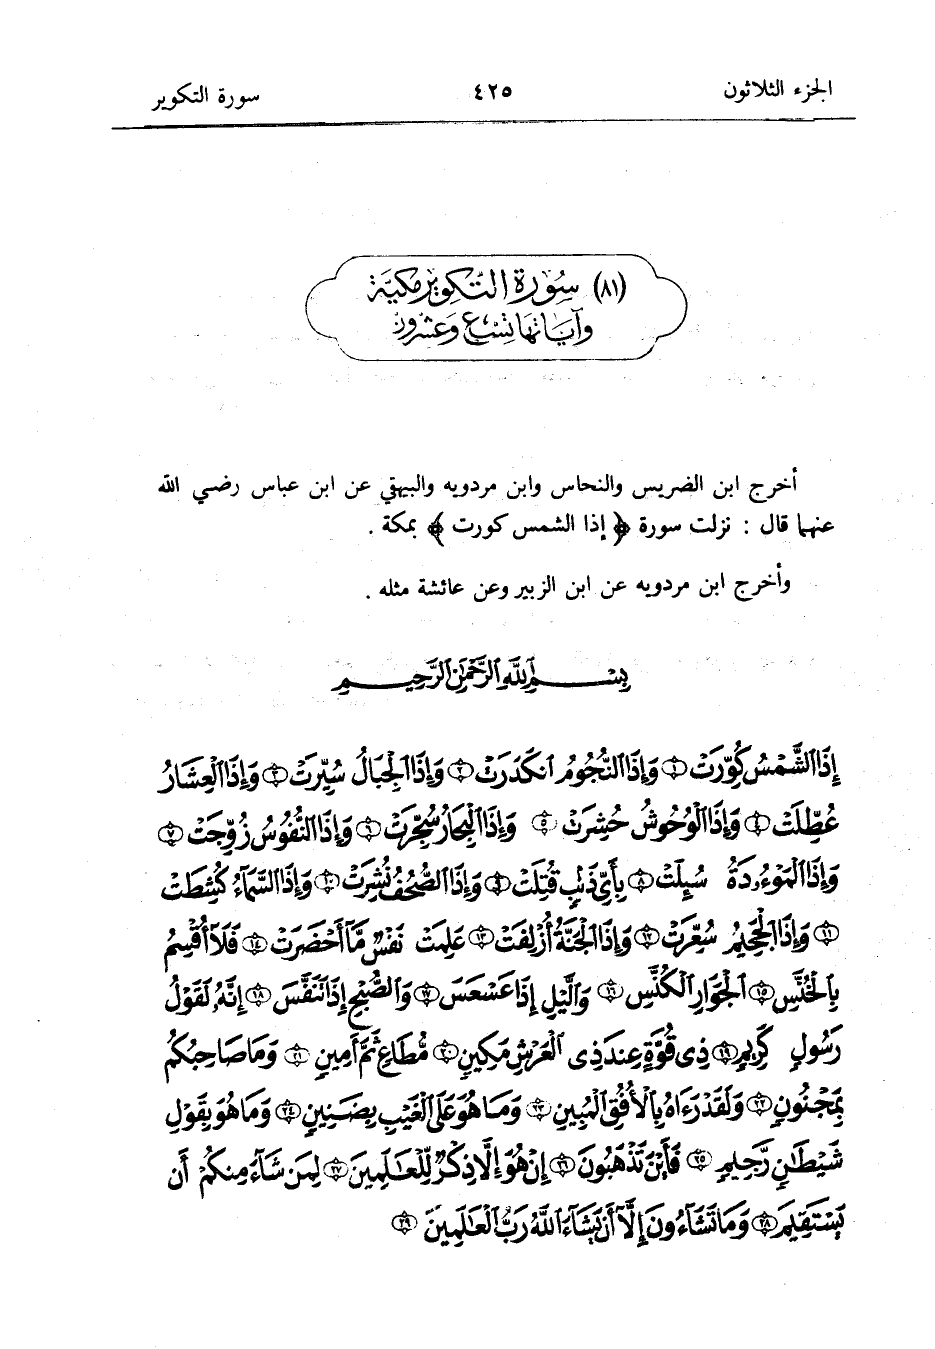 الجزء الثلاثون
٤٢٥
سورة التكوير
(٨١) سُورَة التَّكوِير مَكِيَّة
وَآيَاتهَا تِسْع وَعِشرُون
أخرج ابن الضريس والنحاس وابن مردويه والبيهقي عن ابن عباس رضي الله
عنهما قال : نزلت سورة ﴿ إذا الشمس كورت ﴾ بمكة .
وأخرج ابن مردويه عن ابن الزبير وعن عائشة مثله .
بِسْمِ اللَّهِ الرَّحْمَٰنِ الرَّحِيمِ
إِذَا الشَّمْسُ كُوِّرَتْ ۝١ وَإِذَا النُّجُومُ انكَدَرَتْ ۝٢ وَإِذَا الْجِبَالُ سُيِّرَتْ ۝٣ وَإِذَا الْعِشَارُ
عُطِّلَتْ ۝٤ وَإِذَا الْوُحُوشُ حُشِرَتْ ۝٥ وَإِذَا الْبِحَارُ سُجِّرَتْ ۝٦ وَإِذَا النُّفُوسُ زُوِّجَتْ ۝٧
وَإِذَا الْمَوْءُۥدَةُ سُئِلَتْ ۝٨ بِأَيِّ ذَنبٍ قُتِلَتْ ۝٩ وَإِذَا الصُّحُفُ نُشِرَتْ ۝١٠ وَإِذَا السَّمَآءُ كُشِطَتْ
۝١١ وَإِذَا الْجَحِيمُ سُعِّرَتْ ۝١٢ وَإِذَا الْجَنَّةُ أُزْلِفَتْ ۝١٣ عَلِمَتْ نَفْسٌ مَّآ أَحْضَرَتْ ۝١٤ فَلَآ أُقْسِمُ
بِالْخُنَّسِ ۝١٥ الْجَوَارِ الْكُنَّسِ ۝١٦ وَالَّيْلِ إِذَا عَسْعَسَ ۝١٧ وَالصُّبْحِ إِذَا تَنَفَّسَ ۝١٨ إِنَّهُۥ لَقَوْلُ
رَسُولٍ كَرِيمٍ ۝١٩ ذِى قُوَّةٍ عِندَ ذِى الْعَرْشِ مَكِينٍ ۝٢٠ مُّطَاعٍ ثَمَّ أَمِينٍ ۝٢١ وَمَا صَاحِبُكُم
بِمَجْنُونٍ ۝٢٢ وَلَقَدْ رَءَاهُ بِالْأُفُقِ الْمُبِينِ ۝٢٣ وَمَا هُوَ عَلَى الْغَيْبِ بِضَنِينٍ ۝٢٤ وَمَا هُوَ بِقَوْلِ
شَيْطَٰنٍ رَّجِيمٍ ۝٢٥ فَأَيْنَ تَذْهَبُونَ ۝٢٦ إِنْ هُوَ إِلَّا ذِكْرٌ لِّلْعَٰلَمِينَ ۝٢٧ لِمَن شَآءَ مِنكُمْ أَن
يَسْتَقِيمَ ۝٢٨ وَمَا تَشَآءُونَ إِلَّآ أَن يَشَآءَ اللَّهُ رَبُّ الْعَٰلَمِينَ ۝٢٩